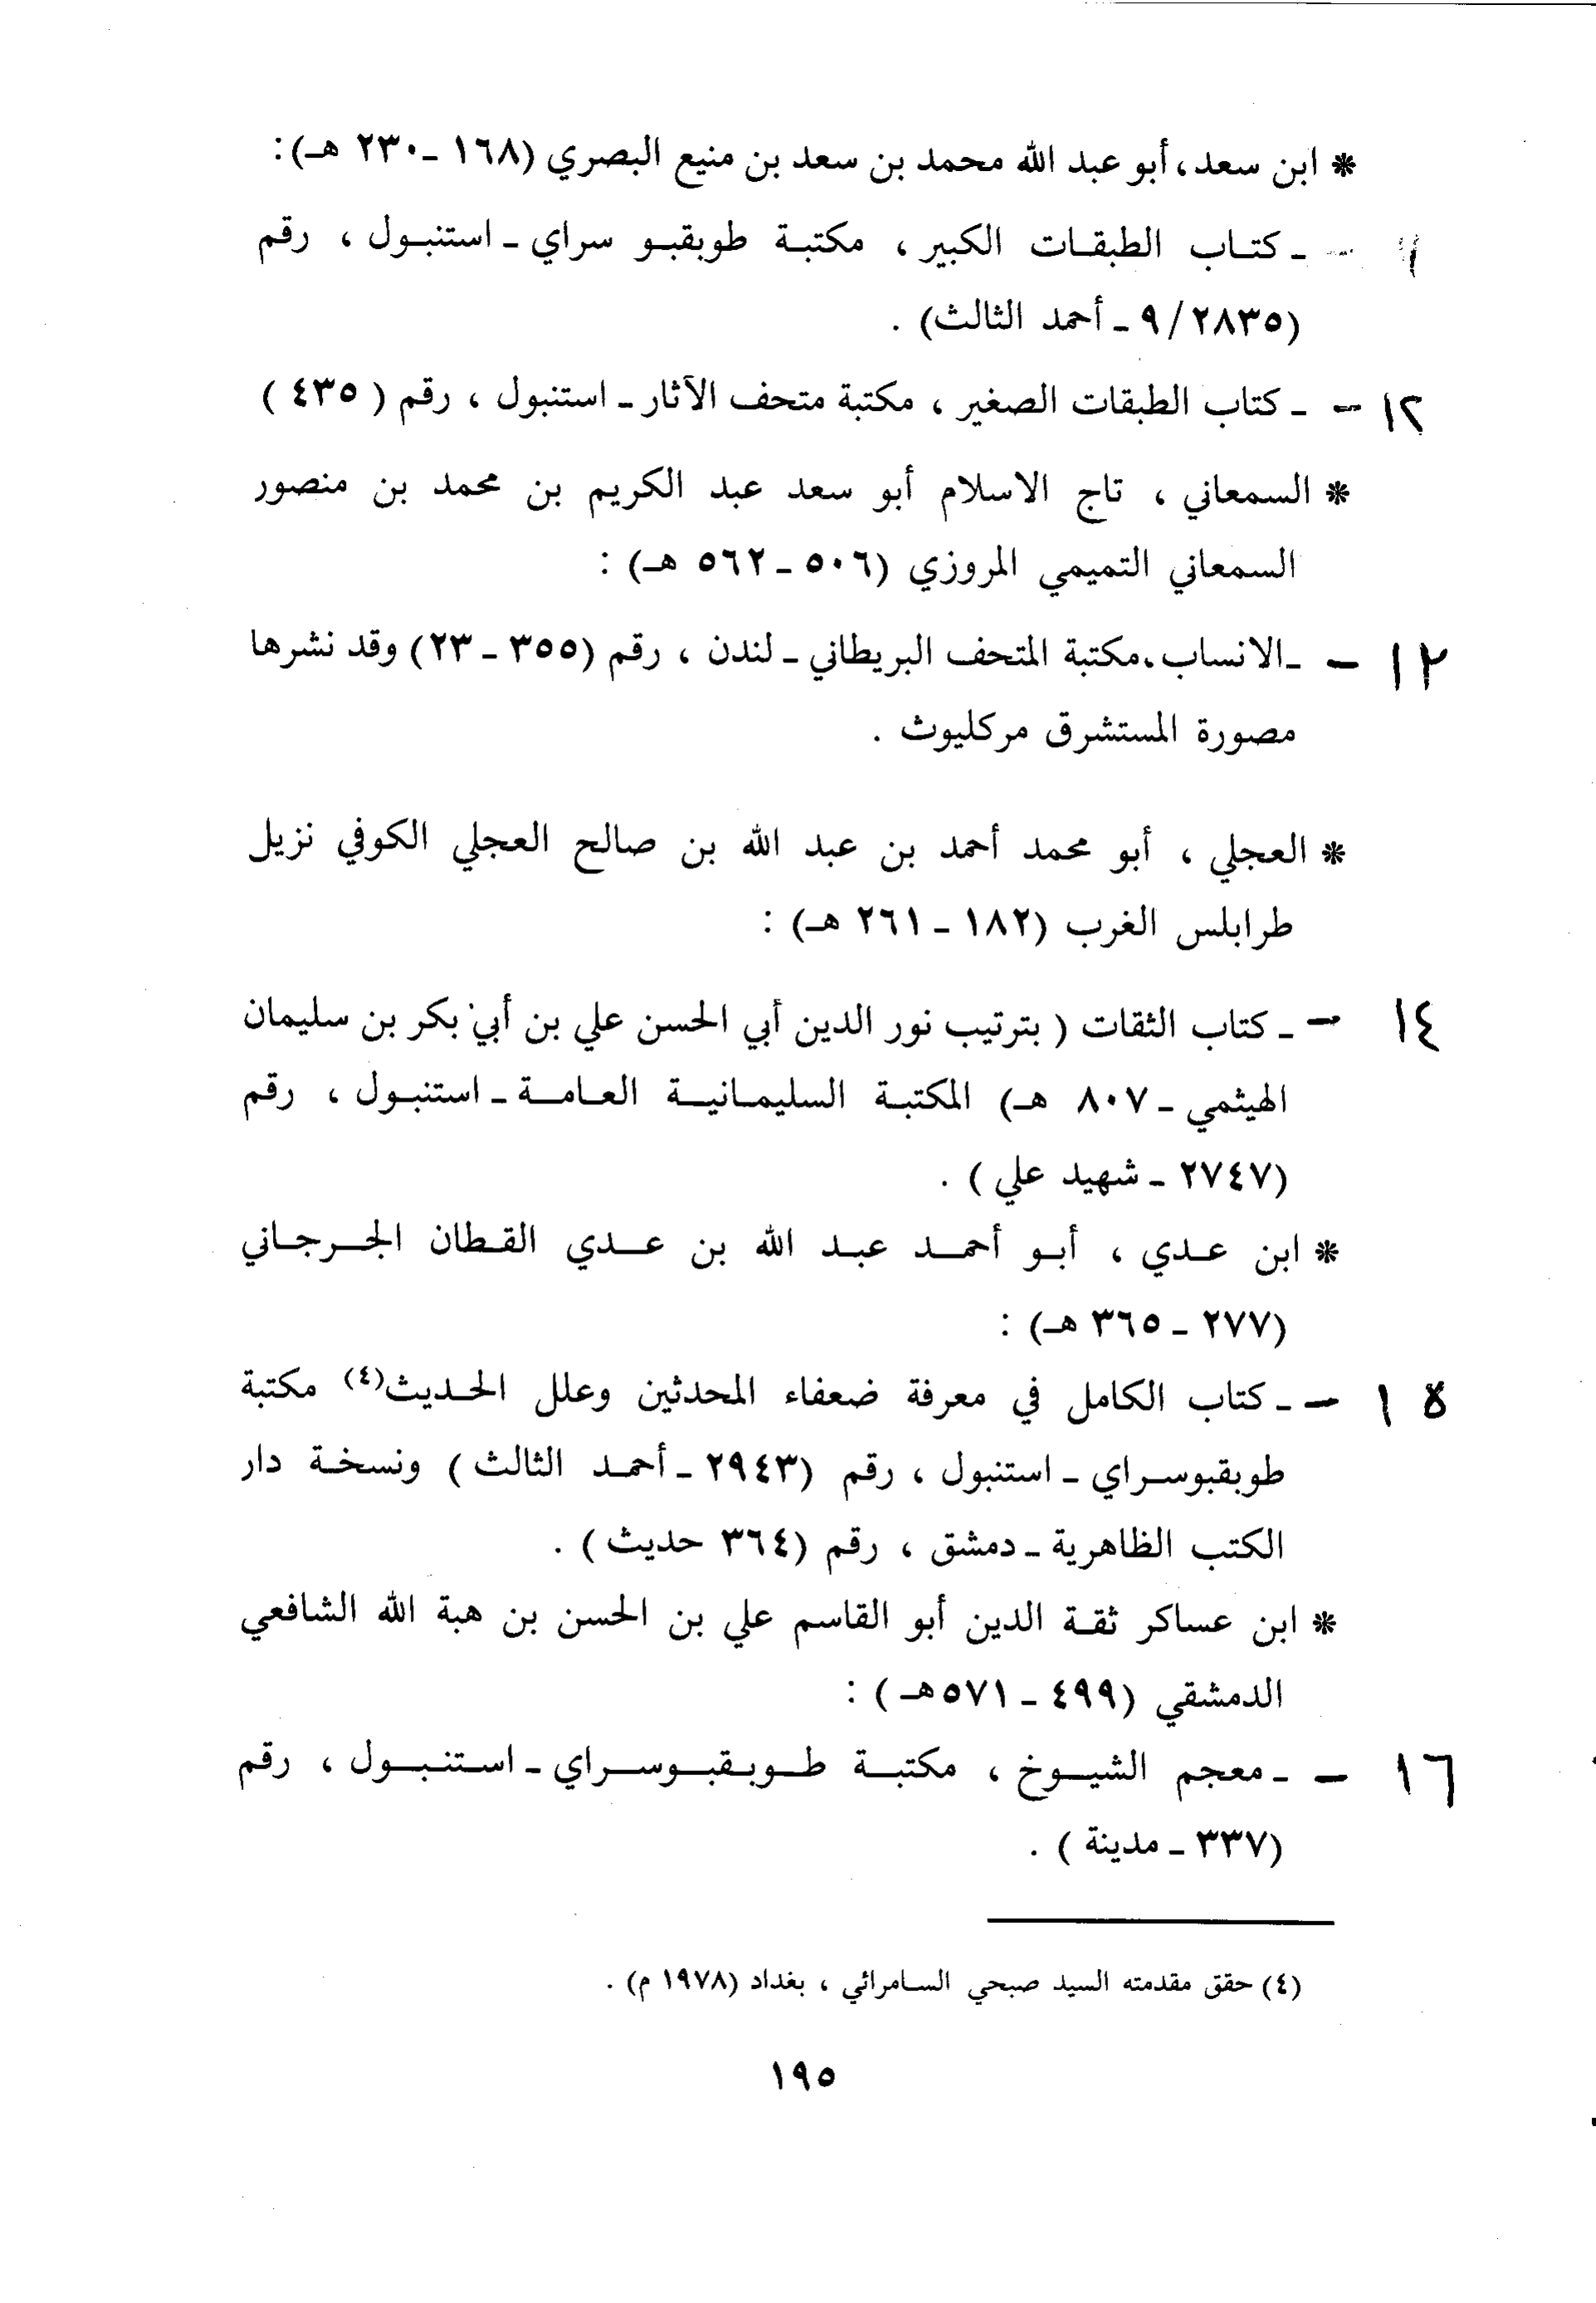 * ابن سعد، أبو عبد الله محمد بن سعد بن منيع البصري (١٦٨ ـ ٢٣٠ هـ):
ـ كتاب الطبقات الكبير ، مكتبة طوبقبو سراي ـ استنبول ، رقم
(٢٨٣٥ /٩ ـ أحمد الثالث) .
١٢ - ـ كتاب الطبقات الصغير ، مكتبة متحف الآثار ـ استنبول ، رقم ( ٤٣٥ )
* السمعاني ، تاج الاسلام أبو سعد عبد الكريم بن محمد بن منصور
السمعاني التميمي المروزي (٥٠٦ ـ ٥٦٢ هـ) :
١٢ - ـ الانساب، مكتبة المتحف البريطاني ـ لندن ، رقم (٣٥٥ ـ ٢٣) وقد نشرها
مصورة المستشرق مركليوث .
* العجلي ، أبو محمد أحمد بن عبد الله بن صالح العجلي الكوفي نزيل
طرابلس الغرب (١٨٢ ـ ٢٦١ هـ) :
١٤ - ـ كتاب الثقات ( بترتيب نور الدين أبي الحسن علي بن أبي بكر بن سليمان
الهيثمي ـ ٨٠٧ هـ) المكتبة السليمانية العامة ـ استنبول ، رقم
(٢٧٤٧ ـ شهيد علي ) .
* ابن عدي ، أبو أحمد عبد الله بن عدي القطان الجرجاني
(٢٧٧ ـ ٣٦٥ هـ) :
١٥ - ـ كتاب الكامل في معرفة ضعفاء المحدثين وعلل الحديث(٤) مكتبة
طوبقبوسراي ـ استنبول ، رقم (٢٩٤٣ ـ أحمد الثالث ) ونسخة دار
الكتب الظاهرية ـ دمشق ، رقم (٣٦٤ حديث ) .
* ابن عساكر ثقة الدين أبو القاسم علي بن الحسن بن هبة الله الشافعي
الدمشقي (٤٩٩ ـ ٥٧١هـ ) :
١٦ - ـ معجم الشيوخ ، مكتبة طوبقبوسراي ـ استنبول ، رقم
(٣٣٧ ـ مدينة ) .
(٤) حقق مقدمته السيد صبحي السامرائي ، بغداد (١٩٧٨ م) .
١٩٥